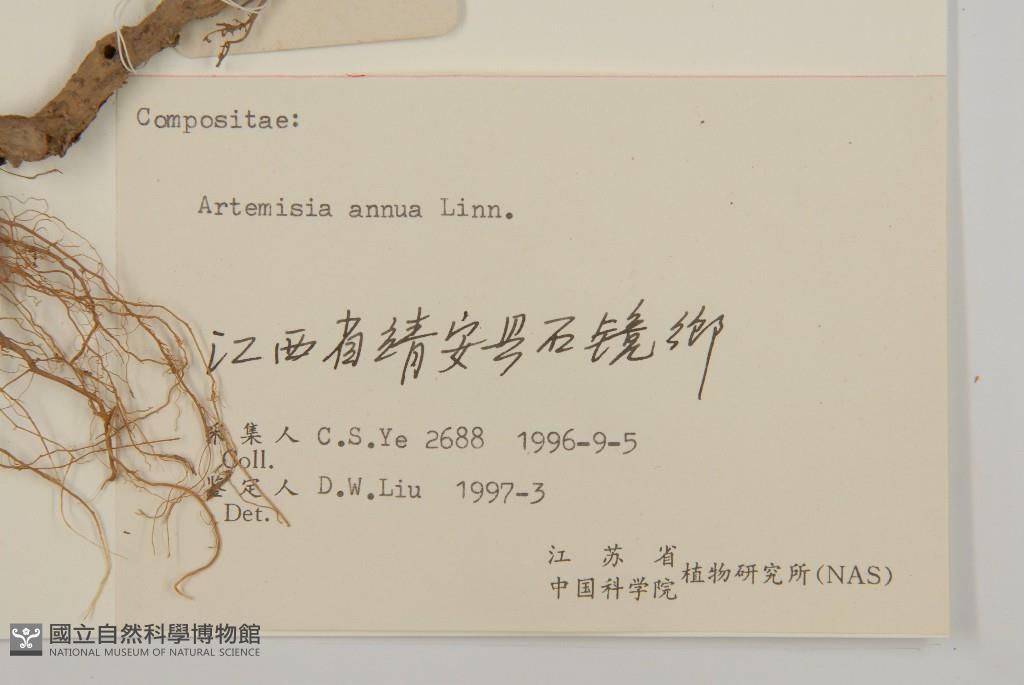 Compositae:
Artemisia annua Linn.
江西省靖安县石镜鄉
采集人 C.S.Ye 2688 1996-9-5
Coll.
鉴定人 D.W.Liu 1997-3
Det.
江苏省
中国科学院 植物研究所(NAS)
國立自然科學博物館
NATIONAL MUSEUM OF NATURAL SCIENCE